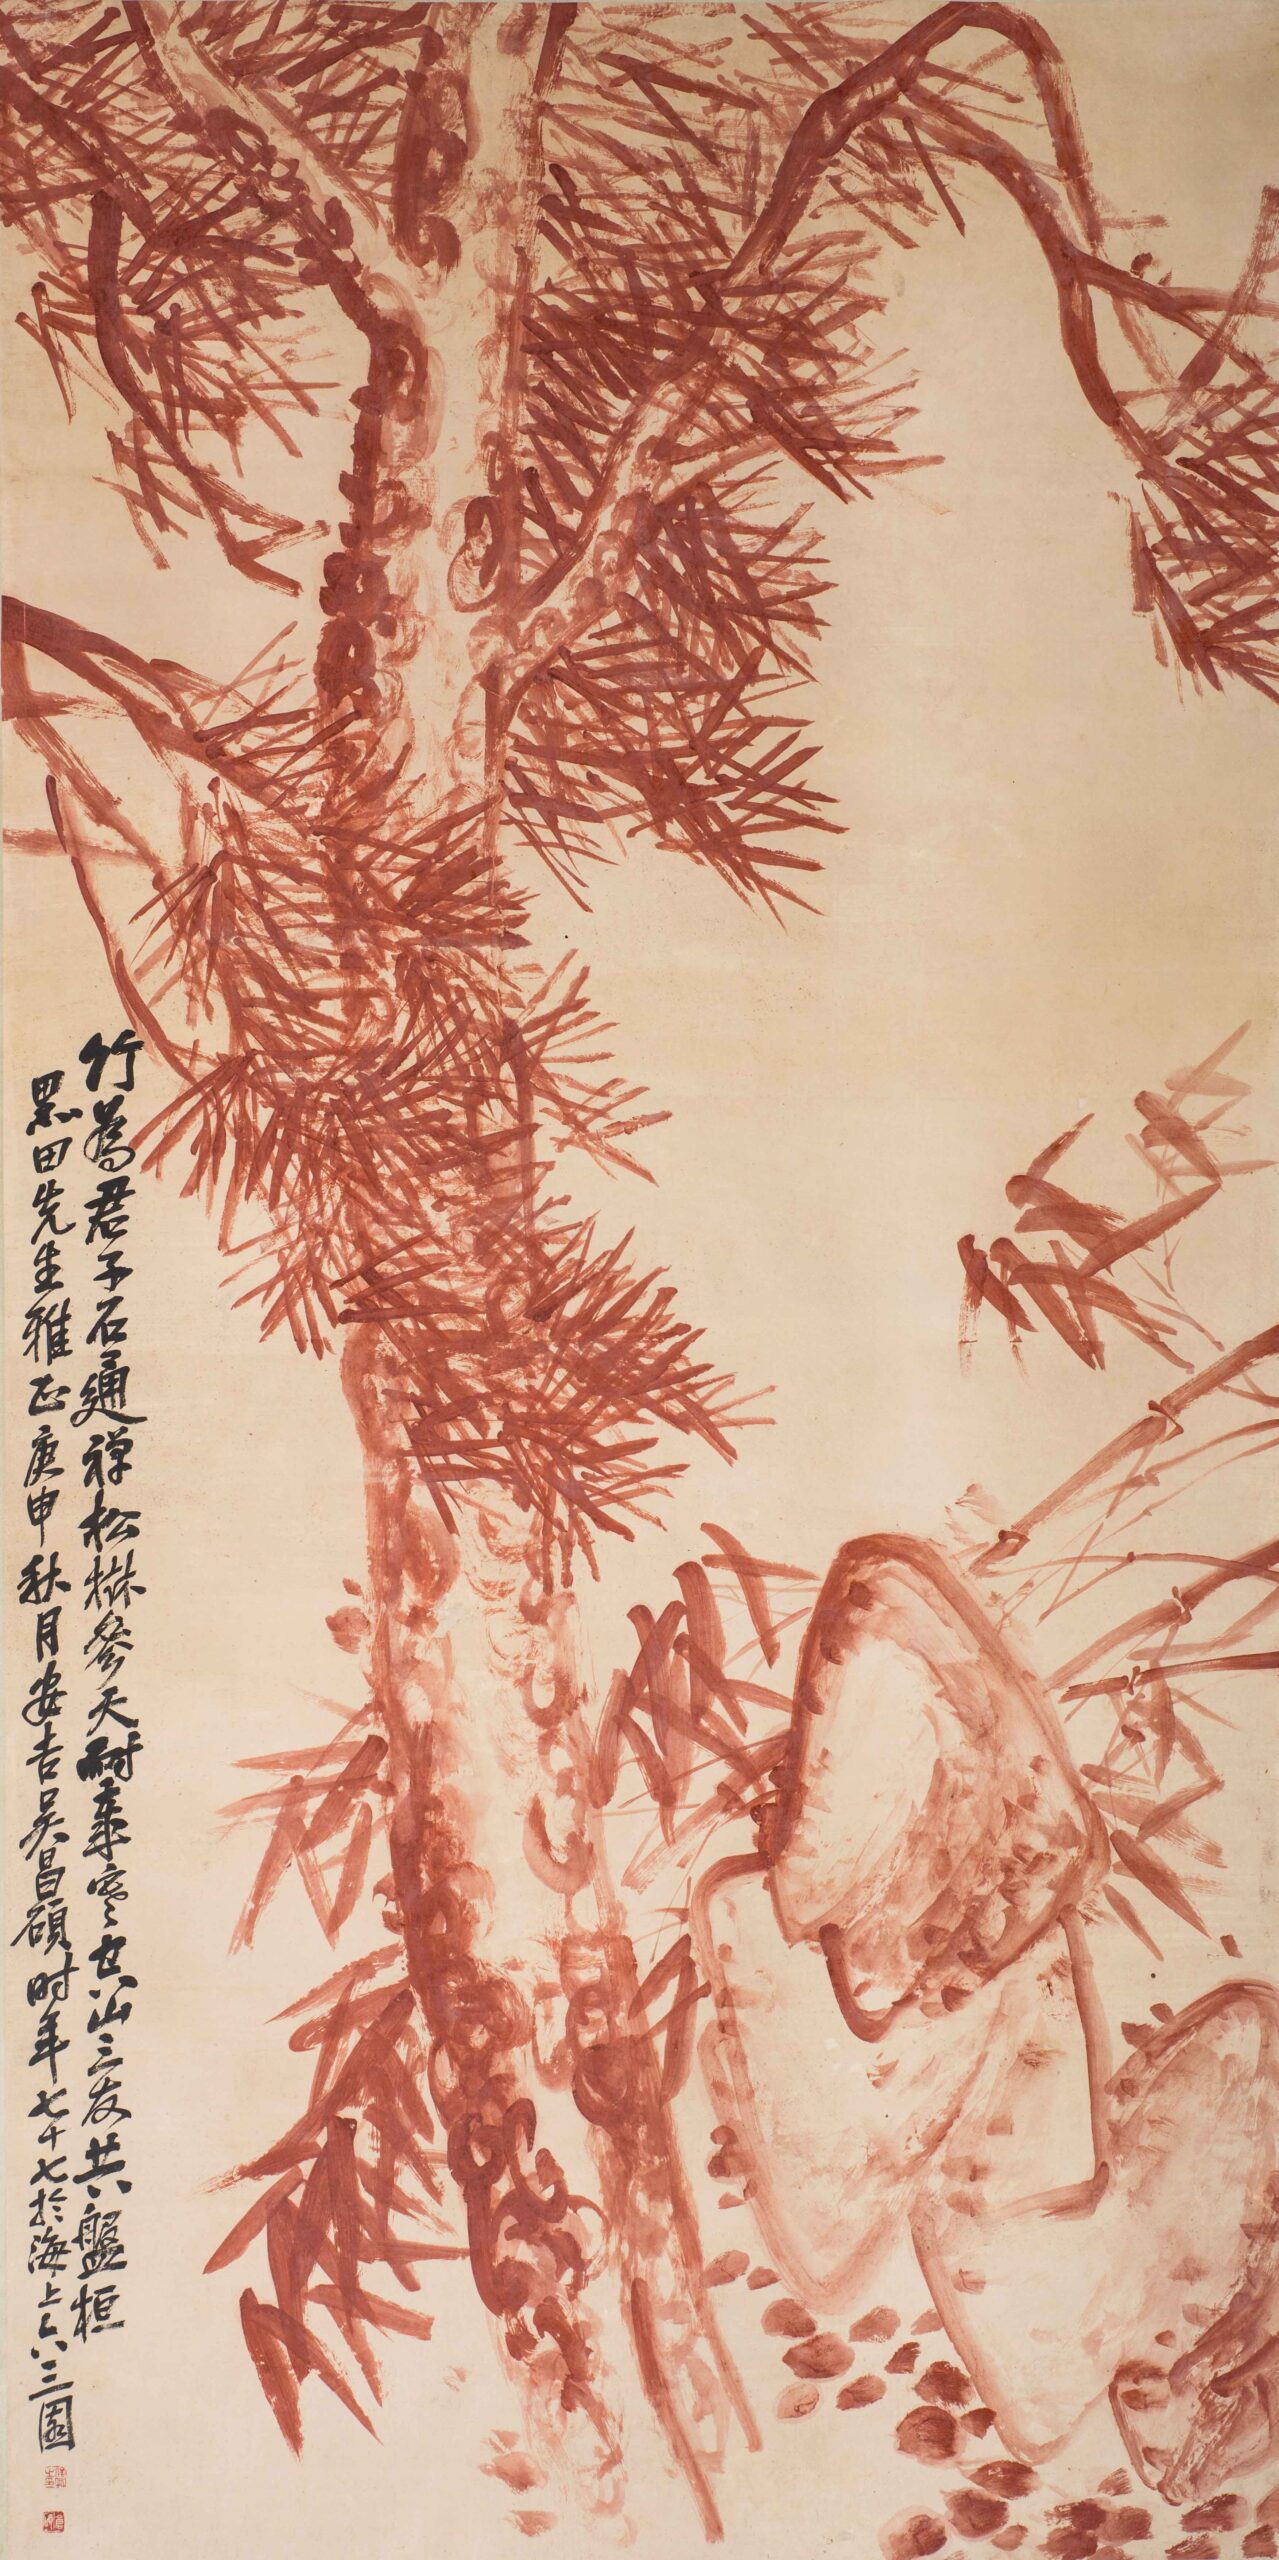 竹為君子石通禪松樹參天耐歲寒空山三友共盤桓
黑田先生雅正庚申秋月安吉吴昌碩时年七十七於海上六三園